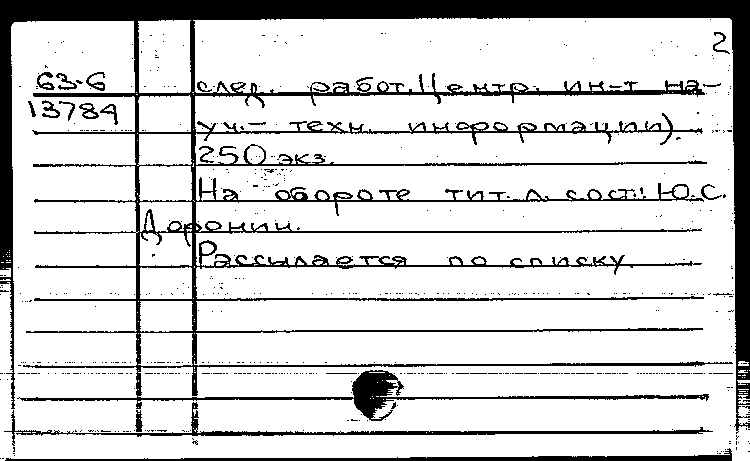 2
63-6 след. работ. Центр. ин-т на-
13784 уч.- техн. информации).
250 экз.
На обороте тит. л. сост.: Ю.С.
Доронин.
Рассылается по списку.